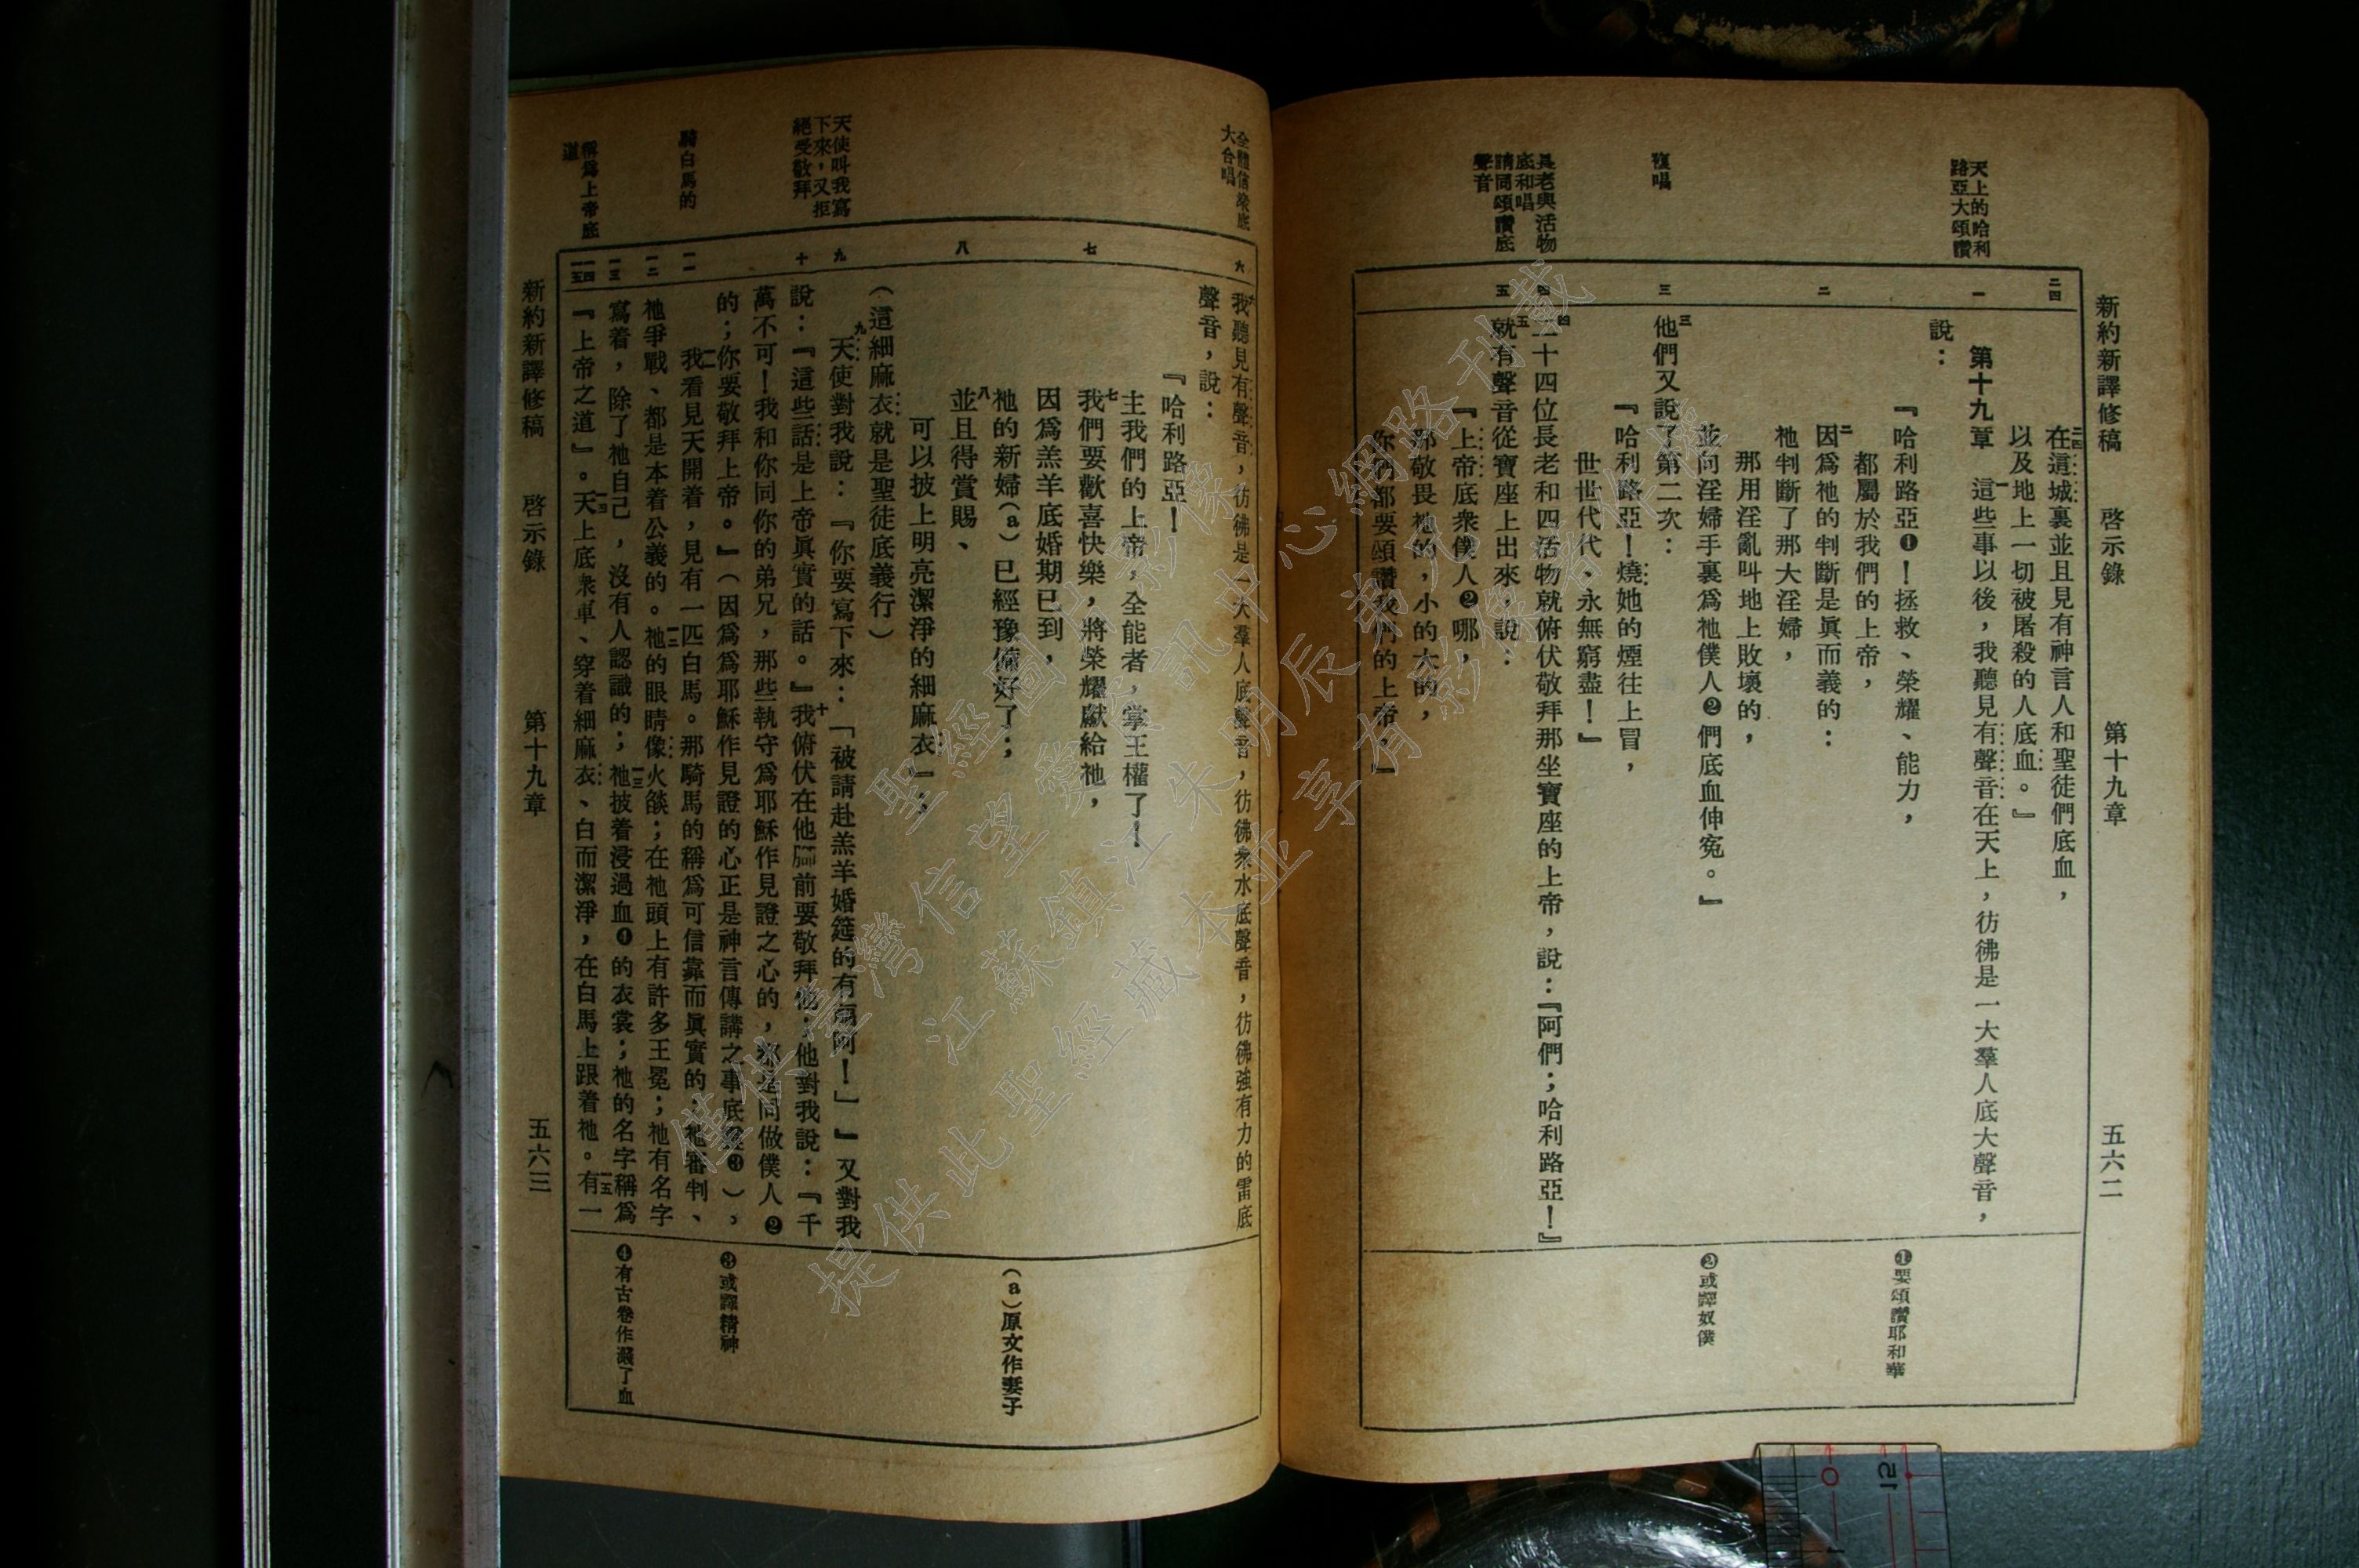 新約新譯修稿　啓示錄　第十九章　五六二
天上的哈利
路亞大頌讚
復唱
長老與活物
底和唱
請同頌讚底
聲音
二四
一
二
三
四
五
二四在這城裏並且見有神言人和聖徒們底血，
以及地上一切被屠殺的人底血。』
第十九章　一這些事以後，我聽見有聲音在天上，彷彿是一大羣人底大聲音，
說：
『哈利路亞❶！拯救、榮耀、能力，
都屬於我們的上帝，
二因爲祂的判斷是眞而義的：
祂判斷了那大淫婦，
那用淫亂叫地上敗壞的，
並向淫婦手裏爲祂僕人❷們底血伸寃。』
三他們又說了第二次：
『哈利路亞！燒她的煙往上冒，
世世代代、永無窮盡！』
四二十四位長老和四活物就俯伏敬拜那坐寶座的上帝，說：『阿們；哈利路亞！』
五就有聲音從寶座上出來，說：
『上帝底衆僕人❷哪，
那敬畏祂的，小的大的，
你們都要頌讚我們的上帝，』
❶要頌讚耶和華
❷或譯奴僕
全體信衆底
大合唱
天使叫我寫
下來，又拒
絕受敬拜
騎白馬的
稱爲上帝底
道
六
七
八
九
十
一一
一二
一三
一四
一五
六我聽見有聲音，彷彿是一大羣人底聲音，彷彿衆水底聲音，彷彿強有力的雷底
聲音，說：
『哈利路亞！
主我們的上帝，全能者，掌王權了！
七我們要歡喜快樂，將榮耀獻給祂，
因爲羔羊底婚期已到，
祂的新婦（a）已經豫備好了；
八並且得賞賜、
可以披上明亮潔淨的細麻衣』；
（這細麻衣就是聖徒底義行）
九天使對我說：『你要寫下來：「被請赴羔羊婚筵的有福阿！」』又對我
說：『這些話是上帝眞實的話。』十我俯伏在他脚前要敬拜他；他對我說：『千
萬不可！我和你同你的弟兄，那些執守爲耶穌作見證之心的，都是同做僕人❷
的；你要敬拜上帝。』（因爲爲耶穌作見證的心正是神言傳講之事底靈❸），
一一我看見天開着，見有一匹白馬。那騎馬的稱爲可信靠而眞實的；祂審判、
祂爭戰、都是本着公義的。一二祂的眼睛像火燄；在祂頭上有許多王冕；祂有名字
寫着，除了祂自己，沒有人認識的；一三祂披着浸過血❹的衣裳；祂的名字稱爲
『上帝之道』。一四天上底衆軍、穿着細麻衣、白而潔淨，在白馬上跟着祂。一五有一
（a）原文作妻子
❸或譯精神
❹有古卷作濺了血
新約新譯修稿　啓示錄　第十九章　五六三
僅供臺灣信望愛資訊中心網路刊載
聖經圖片影像
江蘇鎮江朱明辰弟兄
提供此聖經藏本並享有影像著作權